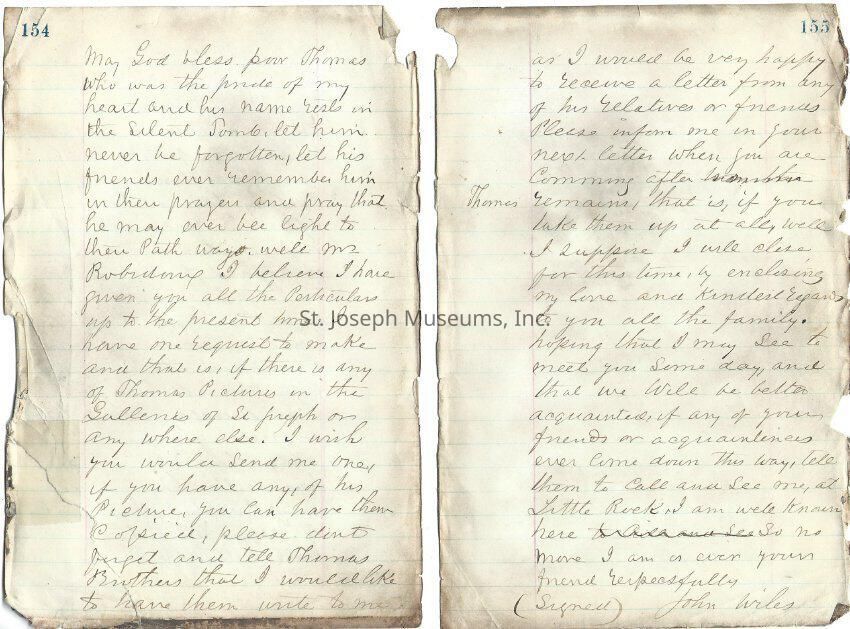 154
May God bless poor Thomas
who was the pride of my
heart and his name rests in
the Silent Tomb, let him
never be forgotten, let his
friends ever remember him
in their prayers and pray that
he may ever bee light to
their Path ways. well Mr
Robidoux I believe I have
given you all the Particulars
up to the present time. I
have one request to make
and that is, if there is any
of Thomas Pictures in the
Galleries of St Joseph or
any where else. I wish
you would send me one,
if you have any, of his
Picture, you can have them
Copied, please dont
forget and tell Thomas
Brothers that I would like
to have them write to me
155
as I would be very happy
to receive a letter from any
of his relatives or friends
Please inform me in your
next letter when you are
Comming after
Thomas remains, that is, if you
take them up at all, well
I suppose I will close
for this time, by enclosing
my love and Kindest regards
to you all the family.
hoping that I may See to
meet you Some day, and
that we Will be better
acquainted, if any of your
friends or acquaintences
ever Come down this way, tell
them to Call and See me, at
Little Rock, I am well Known
here So no
more I am as ever your
friend respecsfully
(Signed) John Wiles
St. Joseph Museums, Inc.